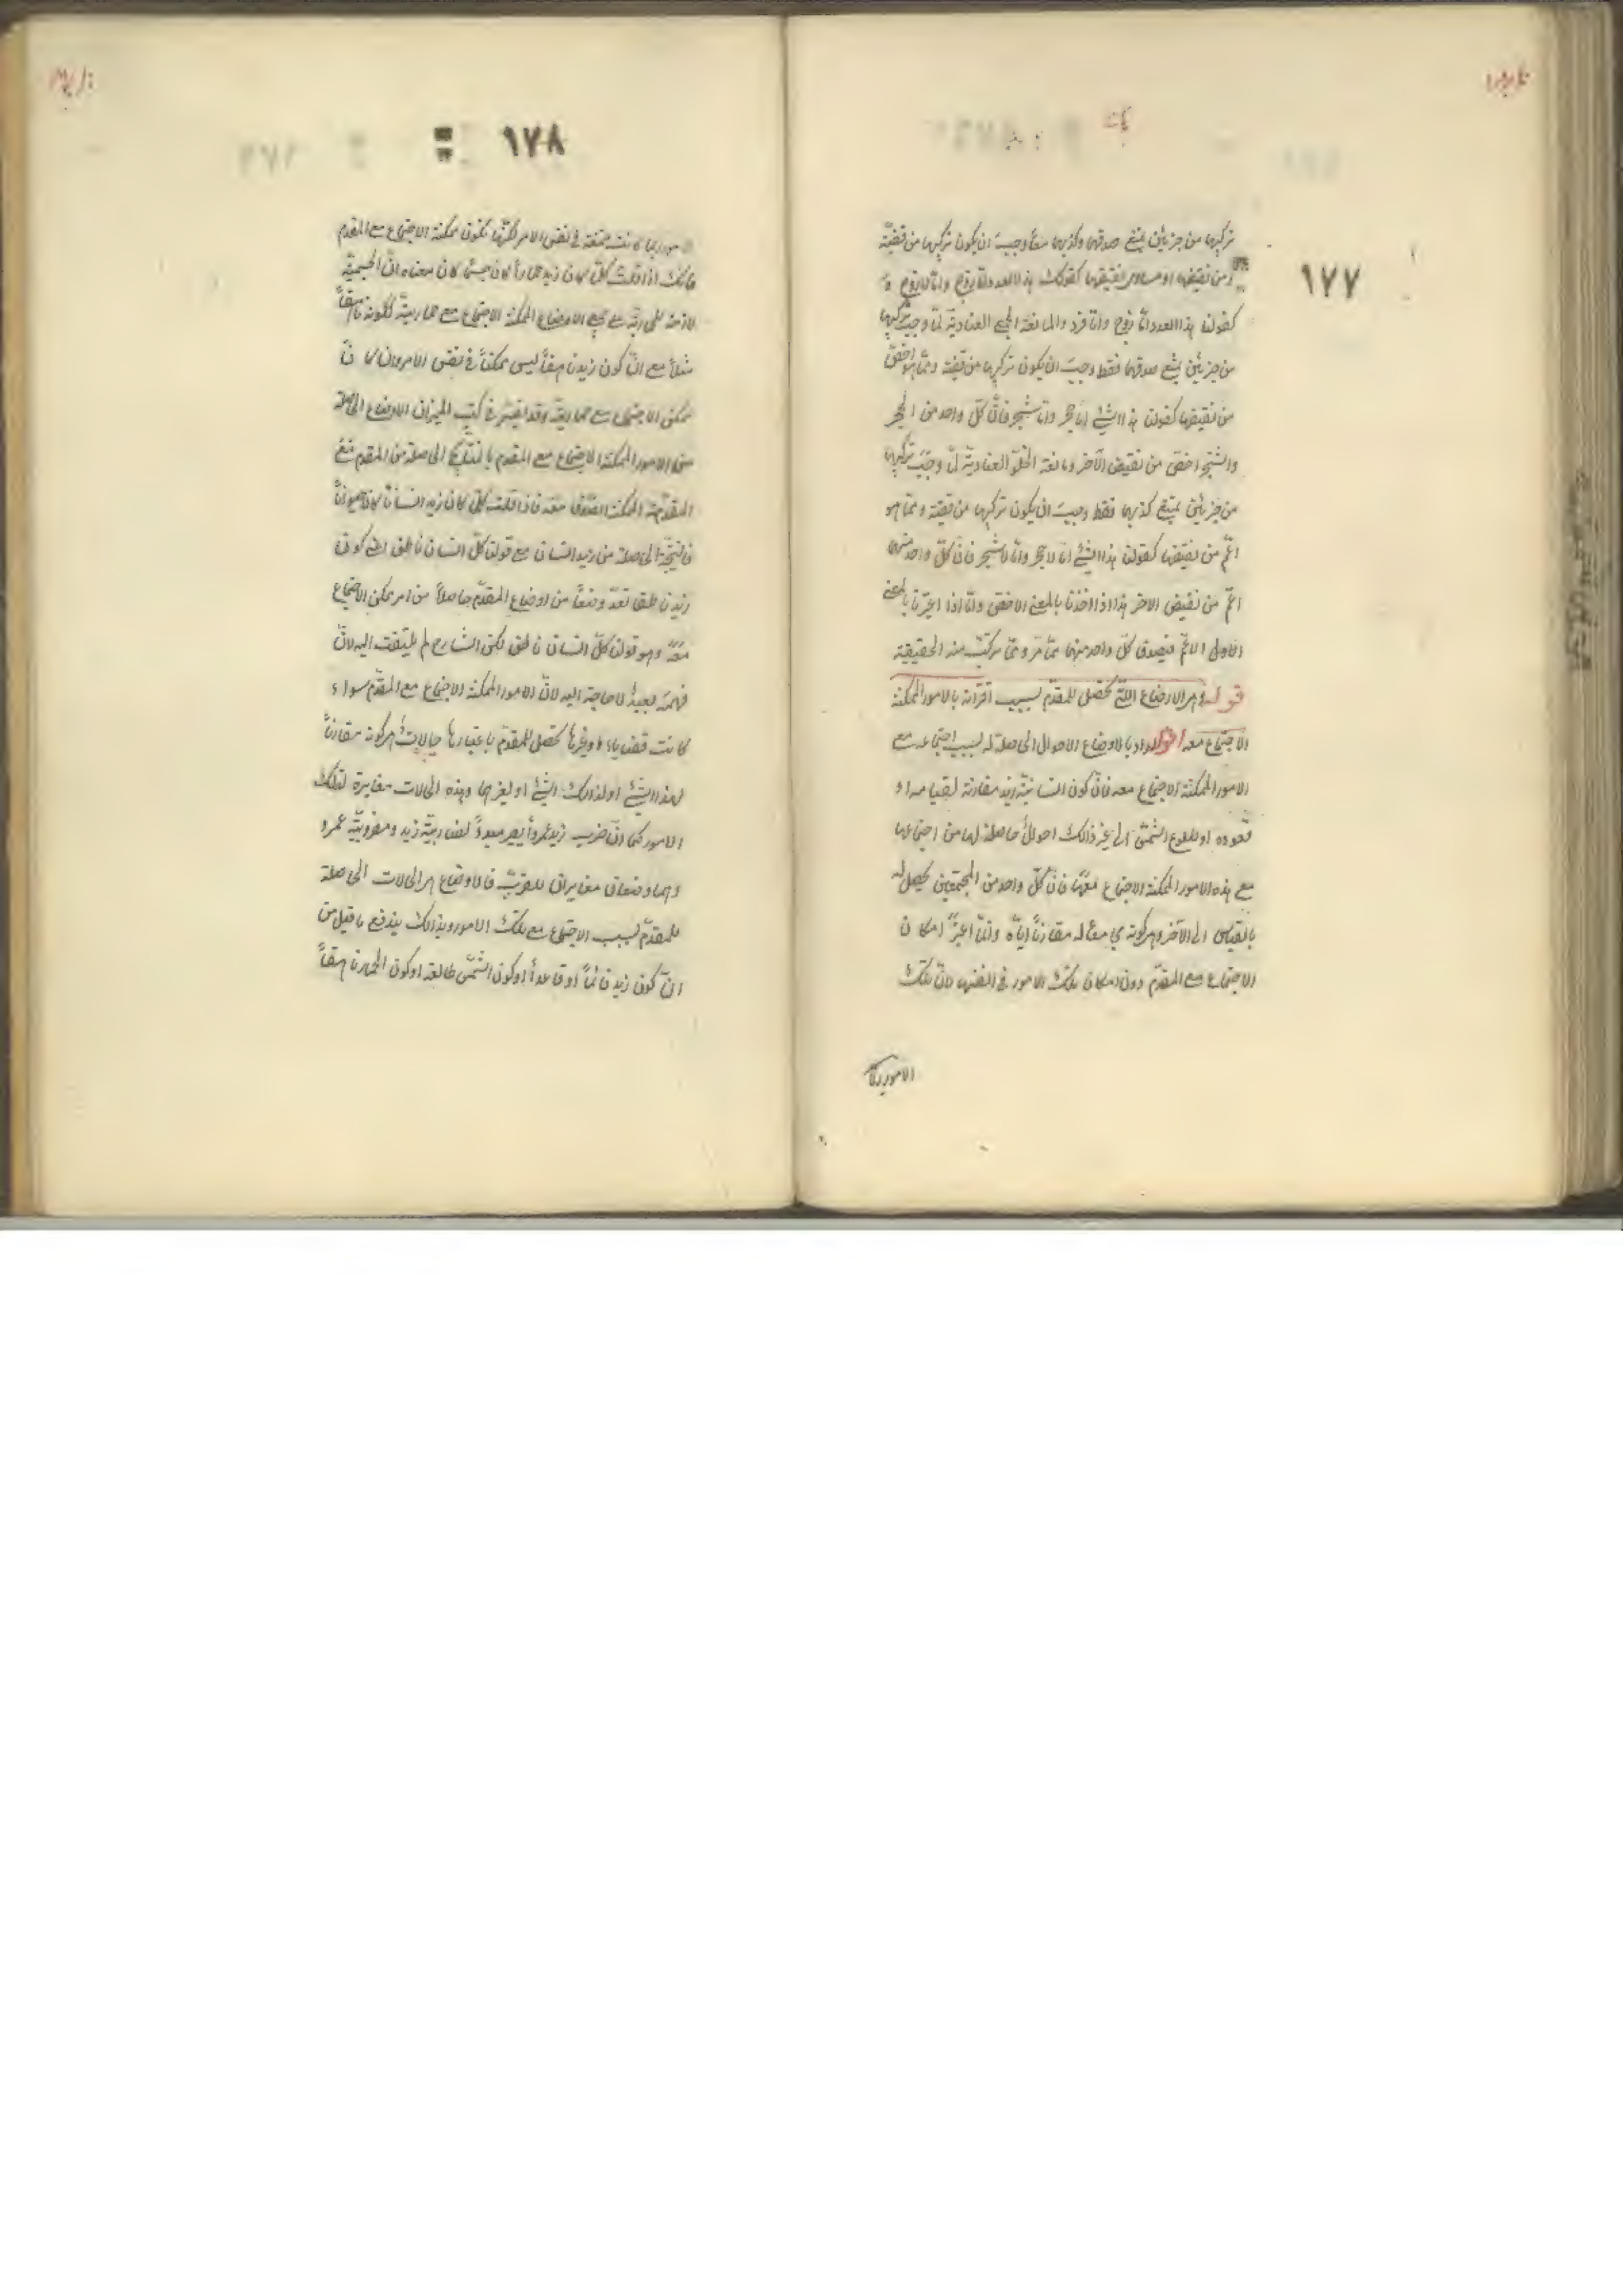 ١٧٧
تركيبها من جزئين يمتنع صدقهما وكذبهما معاً وجب ان يكون تركيبها من قضيّة
ومن نقيضها او مساوي نقيضها كقولك هذا العدد امّا زوج وامّا لا زوج
كقولنا هذا العدد امّا زوج وامّا فرد والمانعة الجمع العناديّة لمّا وجب تركيبها
من جزئين يمتنع صدقهما فقط وجب ان يكون تركيبها من قضيّة وممّا هو اخصّ
من نقيضها كقولنا هذا الشئ امّا حجر وامّا شجر فانّ كلّ واحد من الحجر
والشجر اخصّ من نقيض الآخر ومانعة الخلوّ العناديّة لمّا وجب تركيبها
من جزئين يمتنع كذبهما فقط وجب ان يكون تركيبها من قضيّة وممّا هو
اعمّ من نقيضها كقولنا هذا الشئ امّا لا حجر وامّا لا شجر فانّ كلّ واحد منهما
اعمّ من نقيض الاخر هذا اذا اخذنا بالمعنى الاخصّ وامّا اذا اعتبرنا بالمعنى
الاولى الاعمّ فيصدق كلّ واحد منهما ممّا مرّ وممّا تركّبت منه الحقيقيّة
قوله وهى الاوضاع الّتى تحصل للمقدّم بسبب اقترانه بالامور الممكنة
الاجتماع معه اقول المراد بالاوضاع الاحوال الحاصلة له بسبب اجتماعه مع
الامور الممكنة الاجتماع معه فانّ كون انسانيّة زيد مقارنة لقيامه او
قعوده او طلوع الشمس الى غير ذالك احوال حاصلة لها من اجتماعها
مع هذه الامور الممكنة الاجتماع معها فانّ كلّ واحد من المجتمعين يحصل له
بالقياس الى الآخر وهو كونه مجامعاً له مقارناً ايّاه وانّما اعتبر امكان
الاجتماع مع المقدّم دون امكان تلك الامور فى انفسها لانّ تلك
الامور ربّما
١٧٨
الامور ربما كانت ممتنعة فى نفس الامر لكنّها تكون ممكنة الاجتماع مع المقدم
فانّك اذا قلت كلّما كان زيد حماراً كان جسماً كان معناه انّ الجسميّة
لازمة لحماريّته مع جميع الاوضاع الممكنة الاجتماع مع حماريّته ككونه ناهقاً
مثلاً مع انّ كون زيد ناهقاً ليس ممكناً فى نفس الامر وان كان
ممكن الاجتماع مع حماريّته وقد يفسّر فى كتب الميزان الاوضاع الحاصلة
من الامور الممكنة الاجتماع مع المقدم بالنتايج الحاصلة من المقدم مع
المقدّمة الممكنة الصدق معه فاذا قلت كلّما كان زيد انساناً كان حيواناً
فالنتيجة الحاصلة من زيد انسان مع قولنا كلّ انسان ناطق اعنى كون
زيد ناطقا تعدّ وضعاً من اوضاع المقدّم حاصلاً من امر ممكن الاجتماع
معه وهو قولنا كلّ انسان ناطق لكن الشارح لم يلتفت اليه لانّ
فهمه بعيد لا حاجة اليه لانّ الامور الممكنة الاجتماع مع المقدّم سواء
كانت قضايا او غيرها تحصل للمقدّم باعتبارها حالات هى كونه مقارناً
لهذا الشئ او لذالك الشئ او لغيرهما وهذه الحالات مغايرة لتلك
الامور كما انّ ضرب زيد عمرواً يصير مبدءً لضاربيّة زيد ومضروبيّة عمرو
وهما وصفان مغايران للضرب فالاوضاع هى الحالات الحاصلة
للمقدّم بسبب الاجتماع مع تلك الامور وبذالك يندفع ما قيل من
انّ كون زيد قائماً او قاعداً او كون الشمس طالعة او كون الحمار ناهقاً